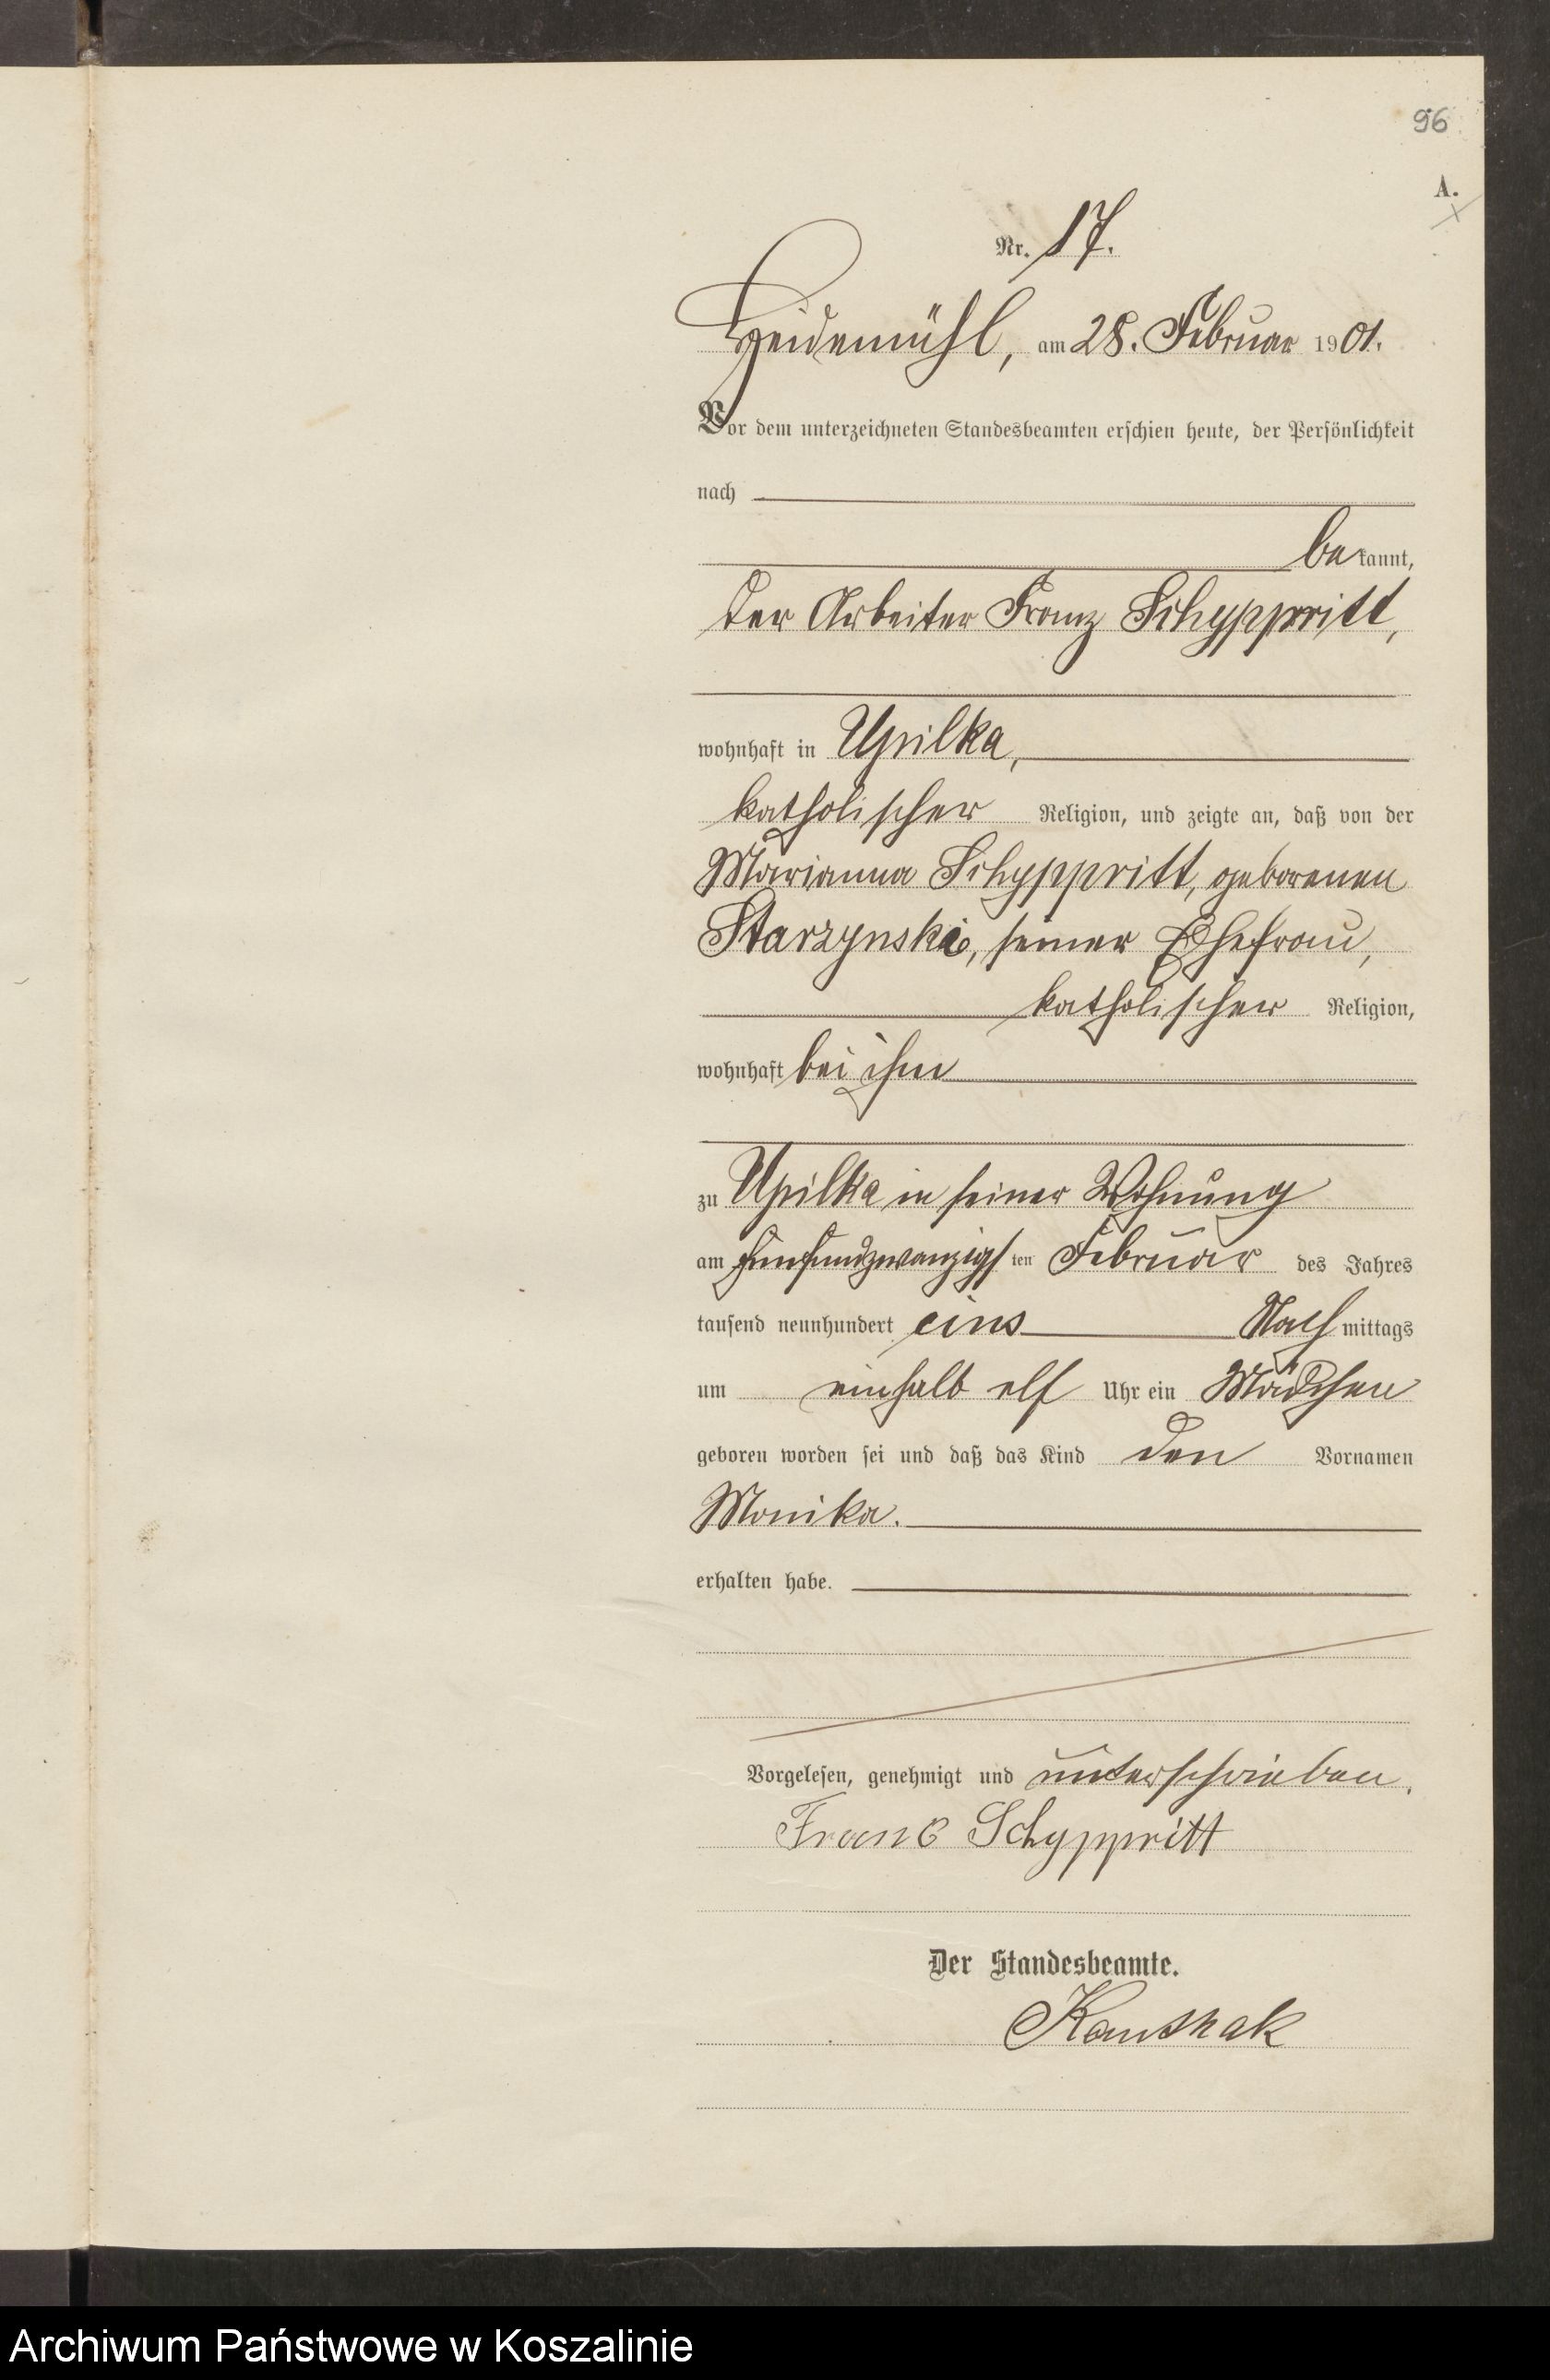 96
A.
Nr. 17.
Heidemühl, am 28. Februar 1901.
Vor dem unterzeichneten Standesbeamten erschien heute, der Persönlichkeit
nach
bekannt,
der Arbeiter Franz Schyppritt,
wohnhaft in Upilka,
katholischer Religion, und zeigte an, daß von der
Marianna Schyppritt, geborenen
Starzynski, seiner Ehefrau,
katholischer Religion,
wohnhaft bei ihm
zu Upilka in seiner Wohnung
am fünfundzwanzigsten Februar des Jahres
tausend neunhundert eins Nachmittags
um einhalb elf Uhr ein Mädchen
geboren worden sei und daß das Kind den Vornamen
Monika.
erhalten habe.
Vorgelesen, genehmigt und unterschrieben.
Franz Schyppritt
Der Standesbeamte.
Archiwum Państwowe w Koszalinie